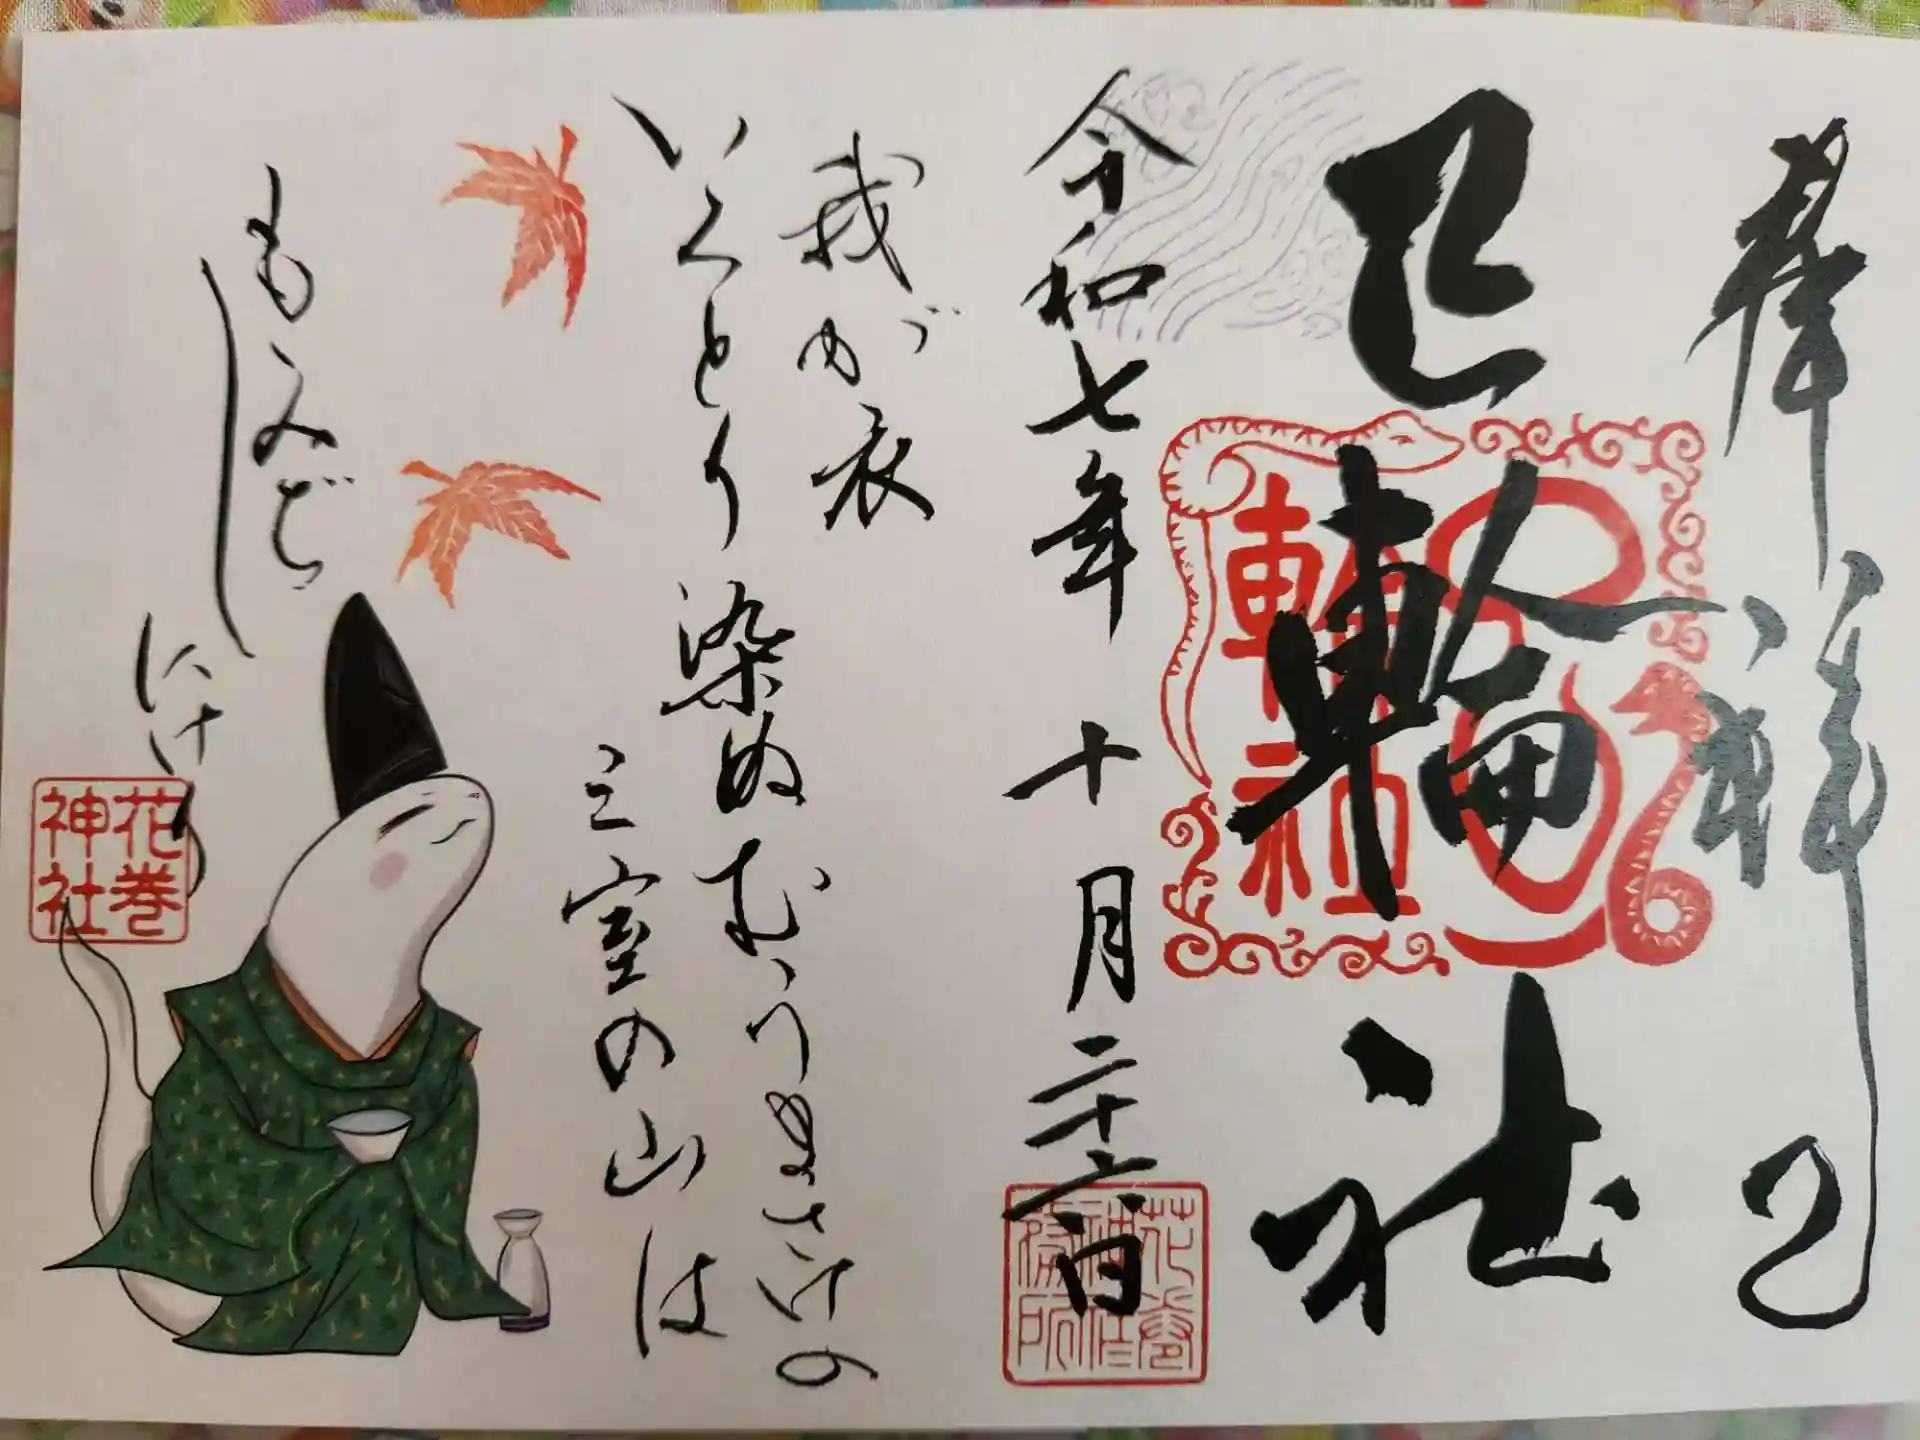 奉
巳輪社
輪社
令和七年 十月二十六日
花巻
神社
務所
我が衣
いろとり染めむうまさけの
三室の山は
もみぢ
し
にけり
花巻
神社